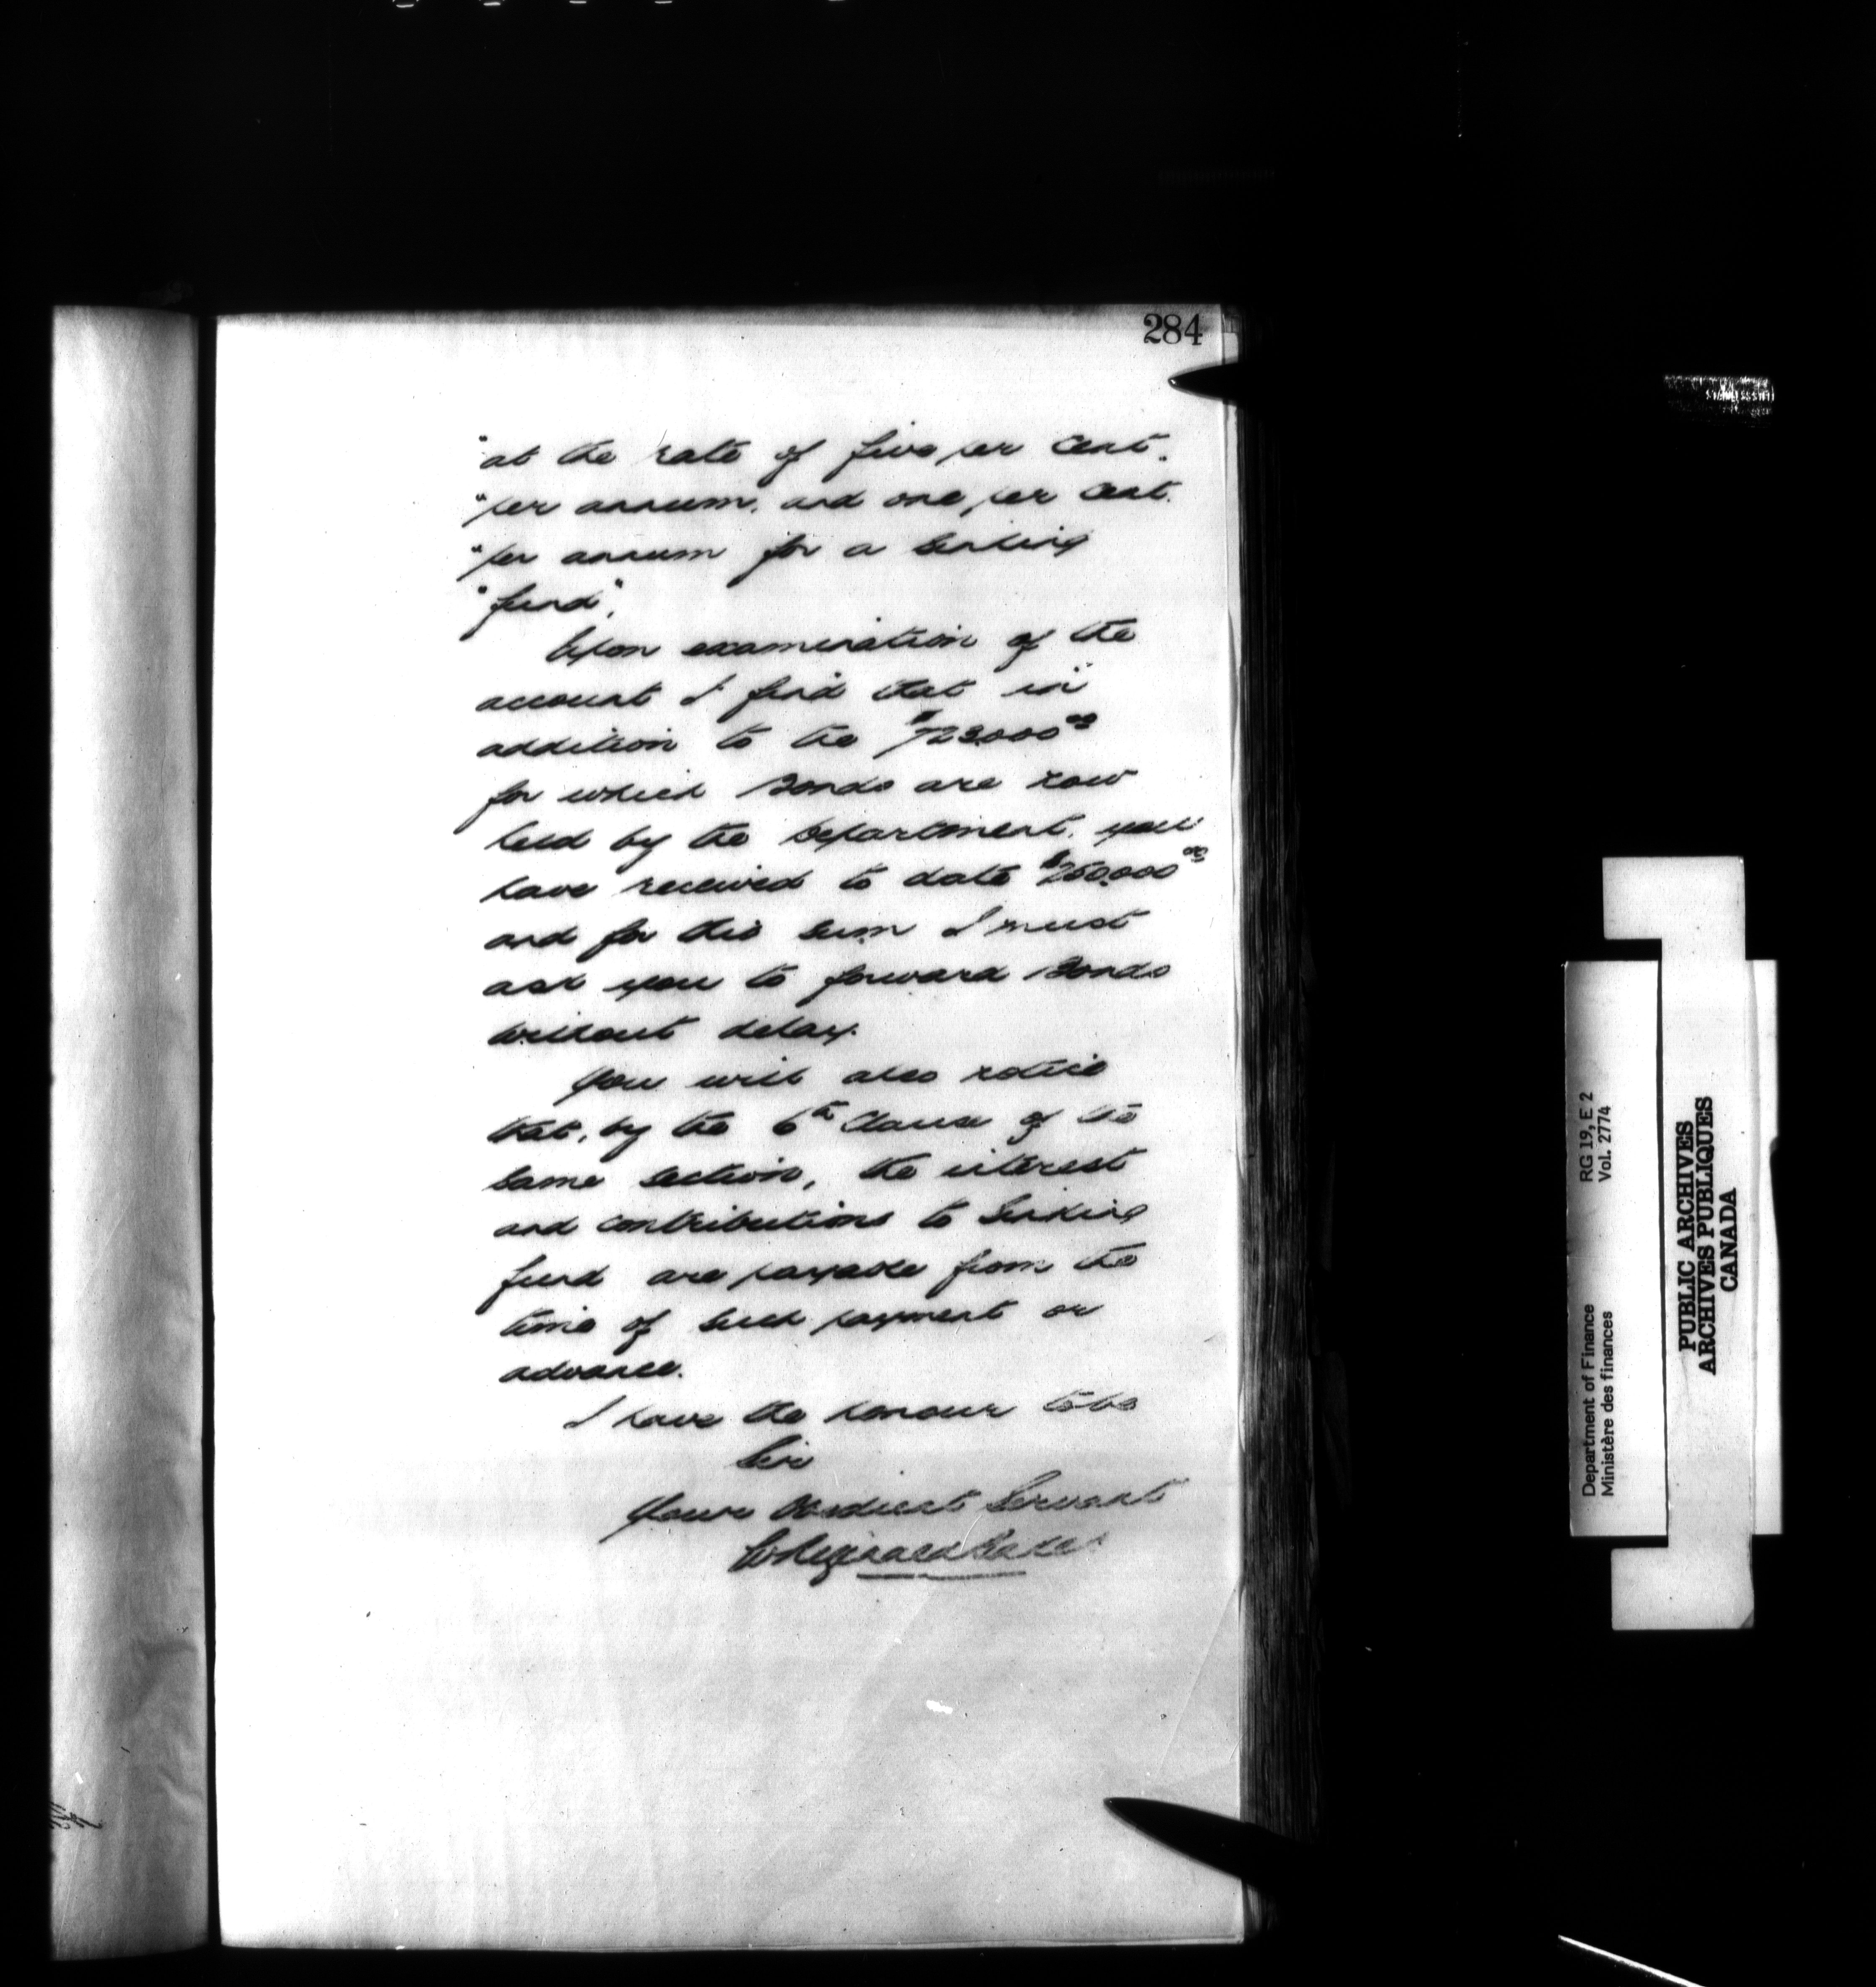 284
"at the rate of five per Cent.
"per annum, and one per Cent.
"per annum for a Sinking
"fund".
Upon examination of the
account I find that in
addition to the $723,000 00
for which Bonds are now
held by the Department, you
have received to date $250,000 00
and for this sum I must
ask you to forward Bonds
without delay.
You will also notice
that, by the 6th Clause of the
same section, the interest
and contributions to Sinking
fund are payable from the
time of such payment or
advance.
I have the honour to be
Sir
Your Obedient Servant
Department of Finance RG 19, E 2
Ministère des finances Vol. 2774
PUBLIC ARCHIVES
ARCHIVES PUBLIQUES
CANADA